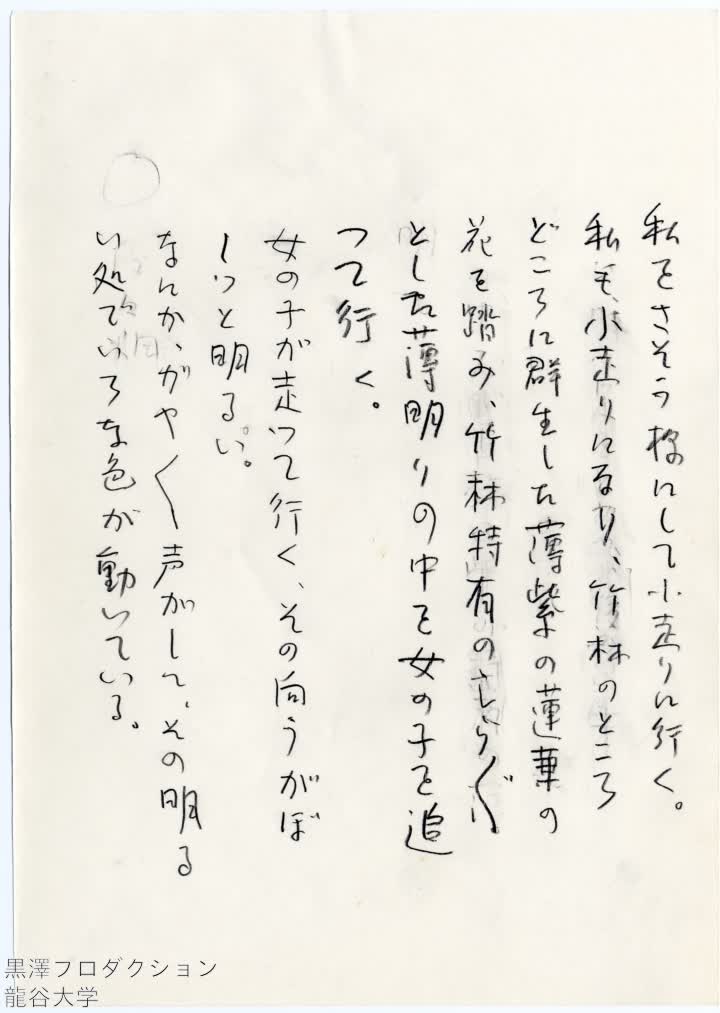 私をさそう様にして小走りに行く。
私も、小走りになり、竹林のところ
どころに群生した薄紫の蓮華の
花を踏み、竹林特有の
とした薄明りの中を女の子を追
って行く。
女の子が走って行く、その向うがぼ
ーっと明るい。
なにか、ガヤ〱声がして、その明る
い処でいろな色が動いている。
黒澤プロダクション
龍谷大学